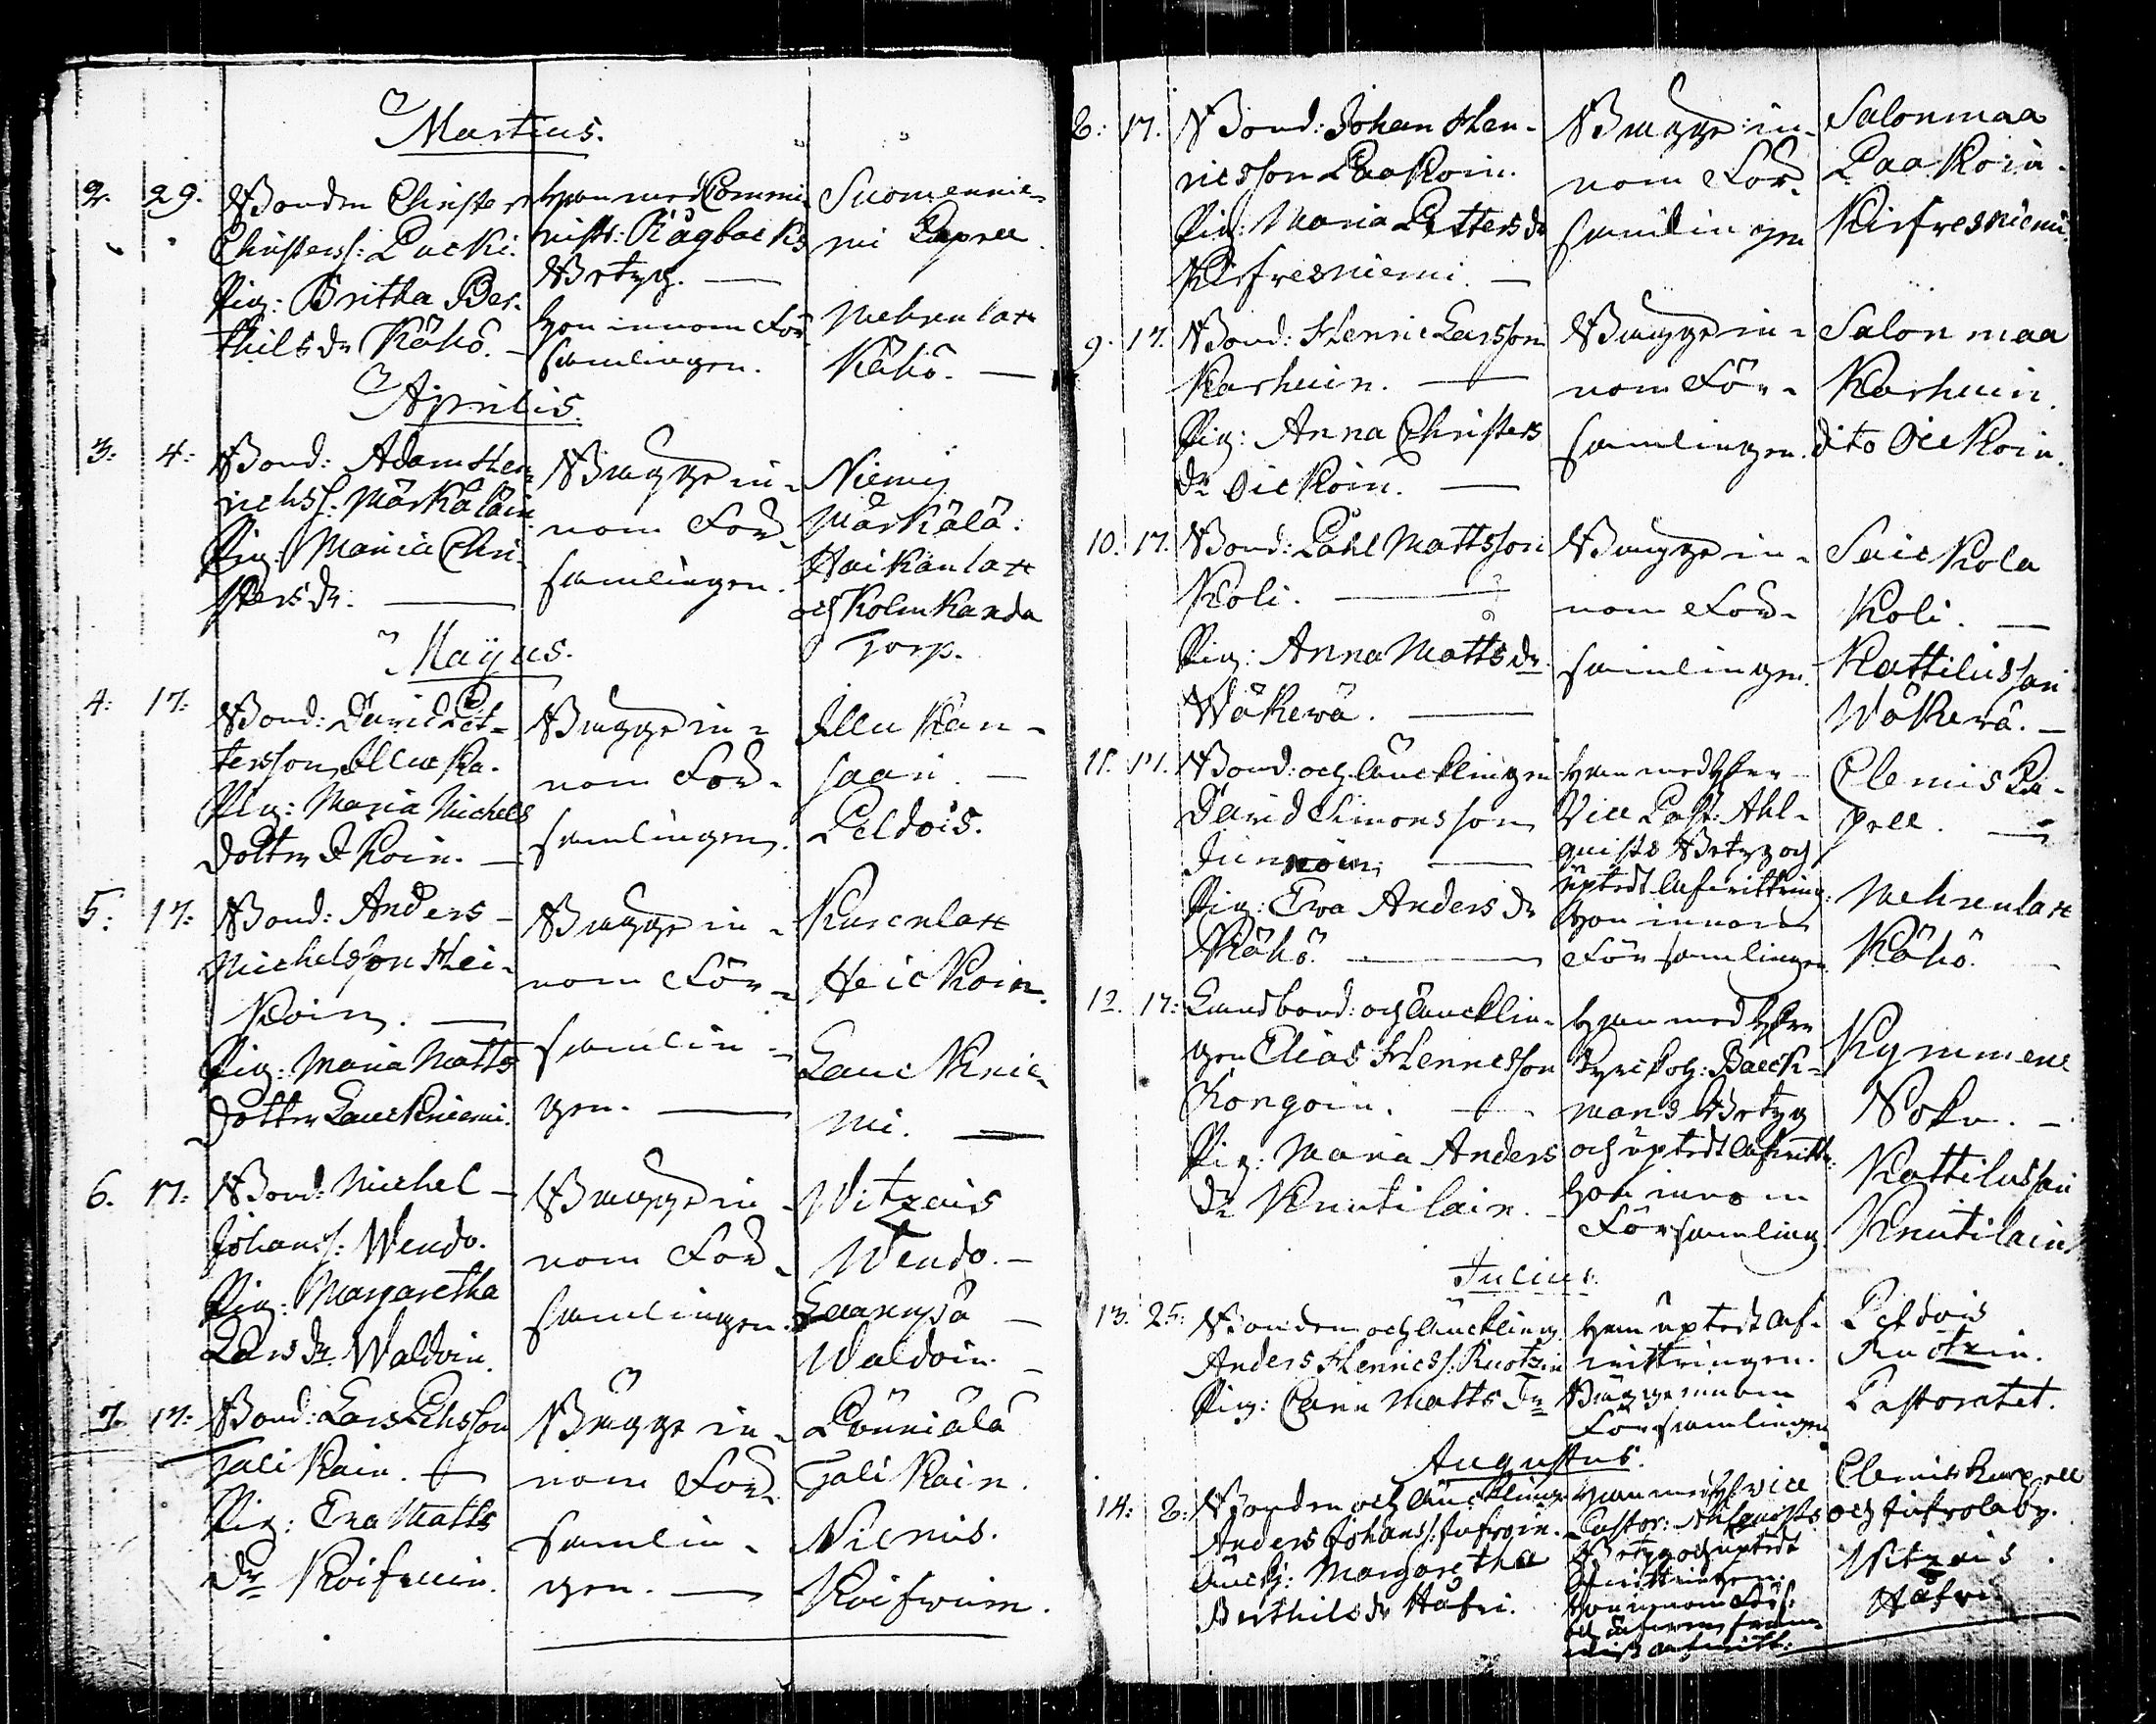 Martius.
2. 29. Bonden Christer
Christerss: Pucki.
Pig: Britha Ber-
thilsdr Kähö.
Han med Commi-
nist: Kägbacks
Betyg.
Hon innom För-
samlingen.
Suomennie-
mi Capell.
Mehrenlax
Kähö.
Aprilis.
3: 4: Bond: Adam Hen-
richss: Märkäläin
Pig: Maria Chri-
stersdr.
Bägge in-
nom För-
samlingen.
Niemis
Märkälä.
Haikanlax
och Kolmikanda
Torp.
Mayus.
4: 17: Bond: David Pet-
tersson Illuka.
Pig: Maria Michels
Dotter Ikoin.
Bägge in-
nom För-
samlingen.
Illukan-
saari.
Peldois.
5: 17: Bond: Anders
Michelsson Hei-
koin.
Pig: Maria Matts
Dotter Lauckniemi.
Bägge in-
nom För-
samlin-
gen.
Kurenlax
Heickoin.
Laucknie-
mi.
6. 17: Bond: Michel
Johanss: Wendo.
Pig: Margaretha
Larsdr Waldoin.
Bägge in-
nom För-
samlingen.
Witzais
Wendo.
Waldoin.
7. 17: Bond: Lars
Talikain.
Pig: Eva Matts
dr Koifwuin.
Bägge in-
nom För-
samlin-
gen.
Pöüniälä
Talikain.
Niemis.
Koifwuin.
8: 17. Bond: Johan Hen-
ricsson Paakoin.
Pig: Maria Pettersdr
Kirfvesniemi.
Bägge in-
nom För-
samlingen
Salonmaa
Paakoin.
Kirfvesniemi.
9. 17. Bond: Henric Larsson
Karhuin.
Pig: Anna Christers
dr Oickoin.
Bägge in-
nom För-
samlingen.
Salonmaa
Karhuin.
dito Oickoin.
10. 17. Bond: Påhl Mattsson
Koli.
Pig: Anna Mattsdr
Wäkewä.
Bägge in-
nom För-
samlingen.
Saickola
Koli.
Kattilussari
Wäkewä.
11. 17. Bond: och Äncklingen
David Simonsson
Junnoin.
Pig: Eva Andersdr
Kähö.
Han med Herr
Vice Past: Ahl-
quists Betyg och
uptedt Afwittring.
Hon innom
Församlingen
Clemis Ka-
pell.
Mehrenlax
Kähö.
12. 17: Landbond: och Äncklin-
gen Elias Henricsson
Kongoin.
Pig: Maria Anders
dr Knutilain.
Han med Herr
Kyrckoh: Baeck-
mans Betyg
och uptedt Afwittr:
Hon innom
Församling
Kymmene
Sokn.
Kattilussari
Knutilain
Julius.
13. 25: Bonden och Änckling
Anders Henricss: Ruotzin
Pig: Carin Matts Dr
Han uptedt Af-
wittringen.
Bägge innom
Församlingen
Peldois
Ruotzin.
Pastoratet.
Augustus.
14: 8: Bonden och Änckling
Anders Johanss: Jufvoin.
Änck: Margaretha
Berthilsdr Häfri.
Han med H: Vice
Pastor: Ahlquists
Betyg och uptedt
Afwittringen.
Hon innom Förs:
Clemis Kapell
och Jufvolaby.
Witzais.
Häfri.